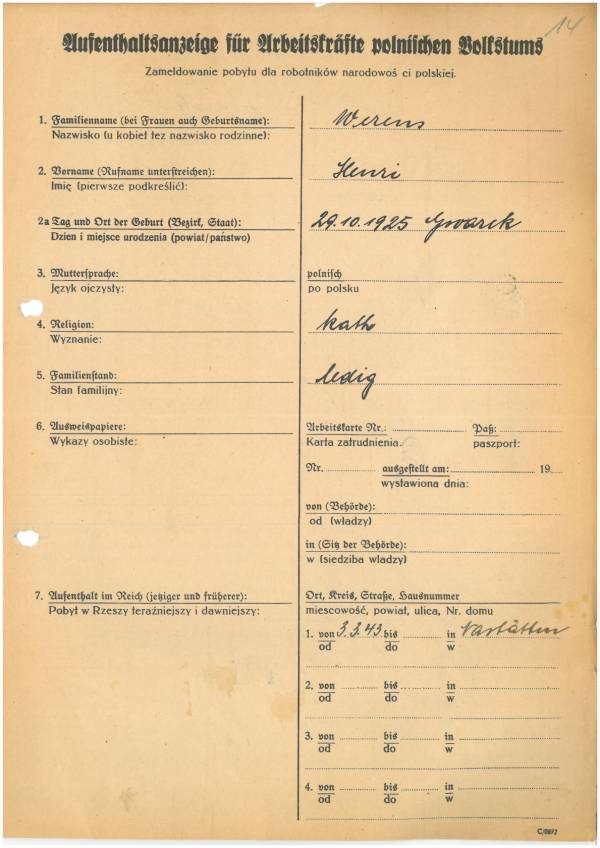 14
Aufenthaltsanzeige für Arbeitskräfte polnischen Volkstums
Zameldowanie pobytu dla robotników narodowoś ci polskiej.
1. Familienname (bei Frauen auch Geburtsname):
Nazwisko (u kobiet też nazwisko rodzinne):
Werens
2. Vorname (Rufname unterstreichen):
Imię (pierwsze podkreślić):
Henri
2a Tag und Ort der Geburt (Bezirk, Staat):
Dzien i miejsce urodzenia (powiat/państwo)
29.10.1925 Gwarek
3. Muttersprache:
Język ojczysty:
polnisch
po polsku
4. Religion:
Wyznanie:
kath
5. Familienstand:
Stan familijny:
ledig
6. Ausweispapiere:
Wykazy osobiste:
Arbeitskarte Nr.: Paß:
Karta zatrudnienia. paszport:
Nr. ausgestellt am: 19
wystawiona dnia:
von (Behörde):
od (władzy)
in (Sitz der Behörde):
w (siedziba wladzy)
7. Aufenthalt im Reich (jetziger und früherer):
Pobyt w Rzeszy teraźniejszy i dawniejszy:
Ort, Kreis, Straße, Hausnummer
miescowość, powiat, ulica, Nr. domu
1. von 3.3.43 bis in Nastätten
od do w
2. von bis in
od do w
3. von bis in
od do w
4. von bis in
od do w
C/0872